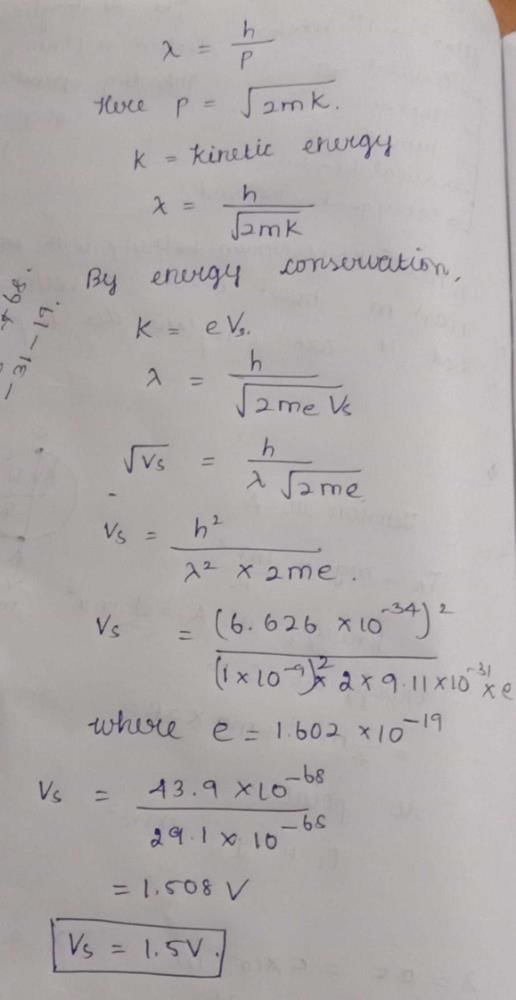 λ = h / p
Here p = √2mK.
K = Kinetic energy
λ = h / √2mK
By energy conservation,
K = eVs.
λ = h / √2me Vs
√Vs = h / λ √2me
Vs = h² / λ² × 2me.
Vs = (6.626 × 10⁻³⁴)² / (1 × 10⁻⁹)² × 2 × 9.11 × 10⁻³¹ × e
where e = 1.602 × 10⁻¹⁹
Vs = 43.9 × 10⁻⁶⁸ / 29.1 × 10⁻⁶⁸
= 1.508 V
Vs = 1.5V.
-31-19.